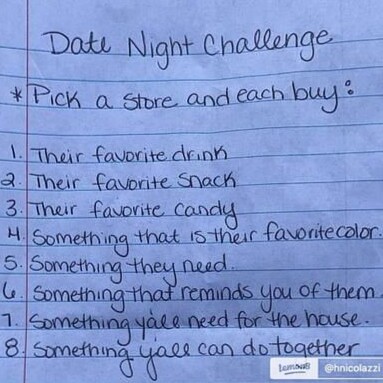 Date Night Challenge
*Pick a store and each buy:
1. Their favorite drink
2. Their favorite snack
3. Their favorite candy
4. Something that is their favorite color.
5. Something they need.
6. Something that reminds you of them.
7. Something yall need for the house.
8. Something y'all can do together
@hnicolazzi